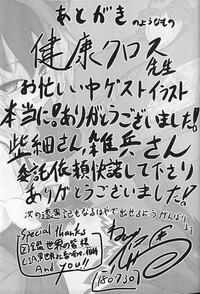 あとがき
のようなもの
健康クロス先生
お忙しい中ゲストイラスト
本当に!ありがとうございました!
柴細さん,雑兵さん
委託依頼快諾して下さり
ありがとうございました!
次の
もなるはやで出せるようがんばり
Special thanks
世界の皆様
And you!!